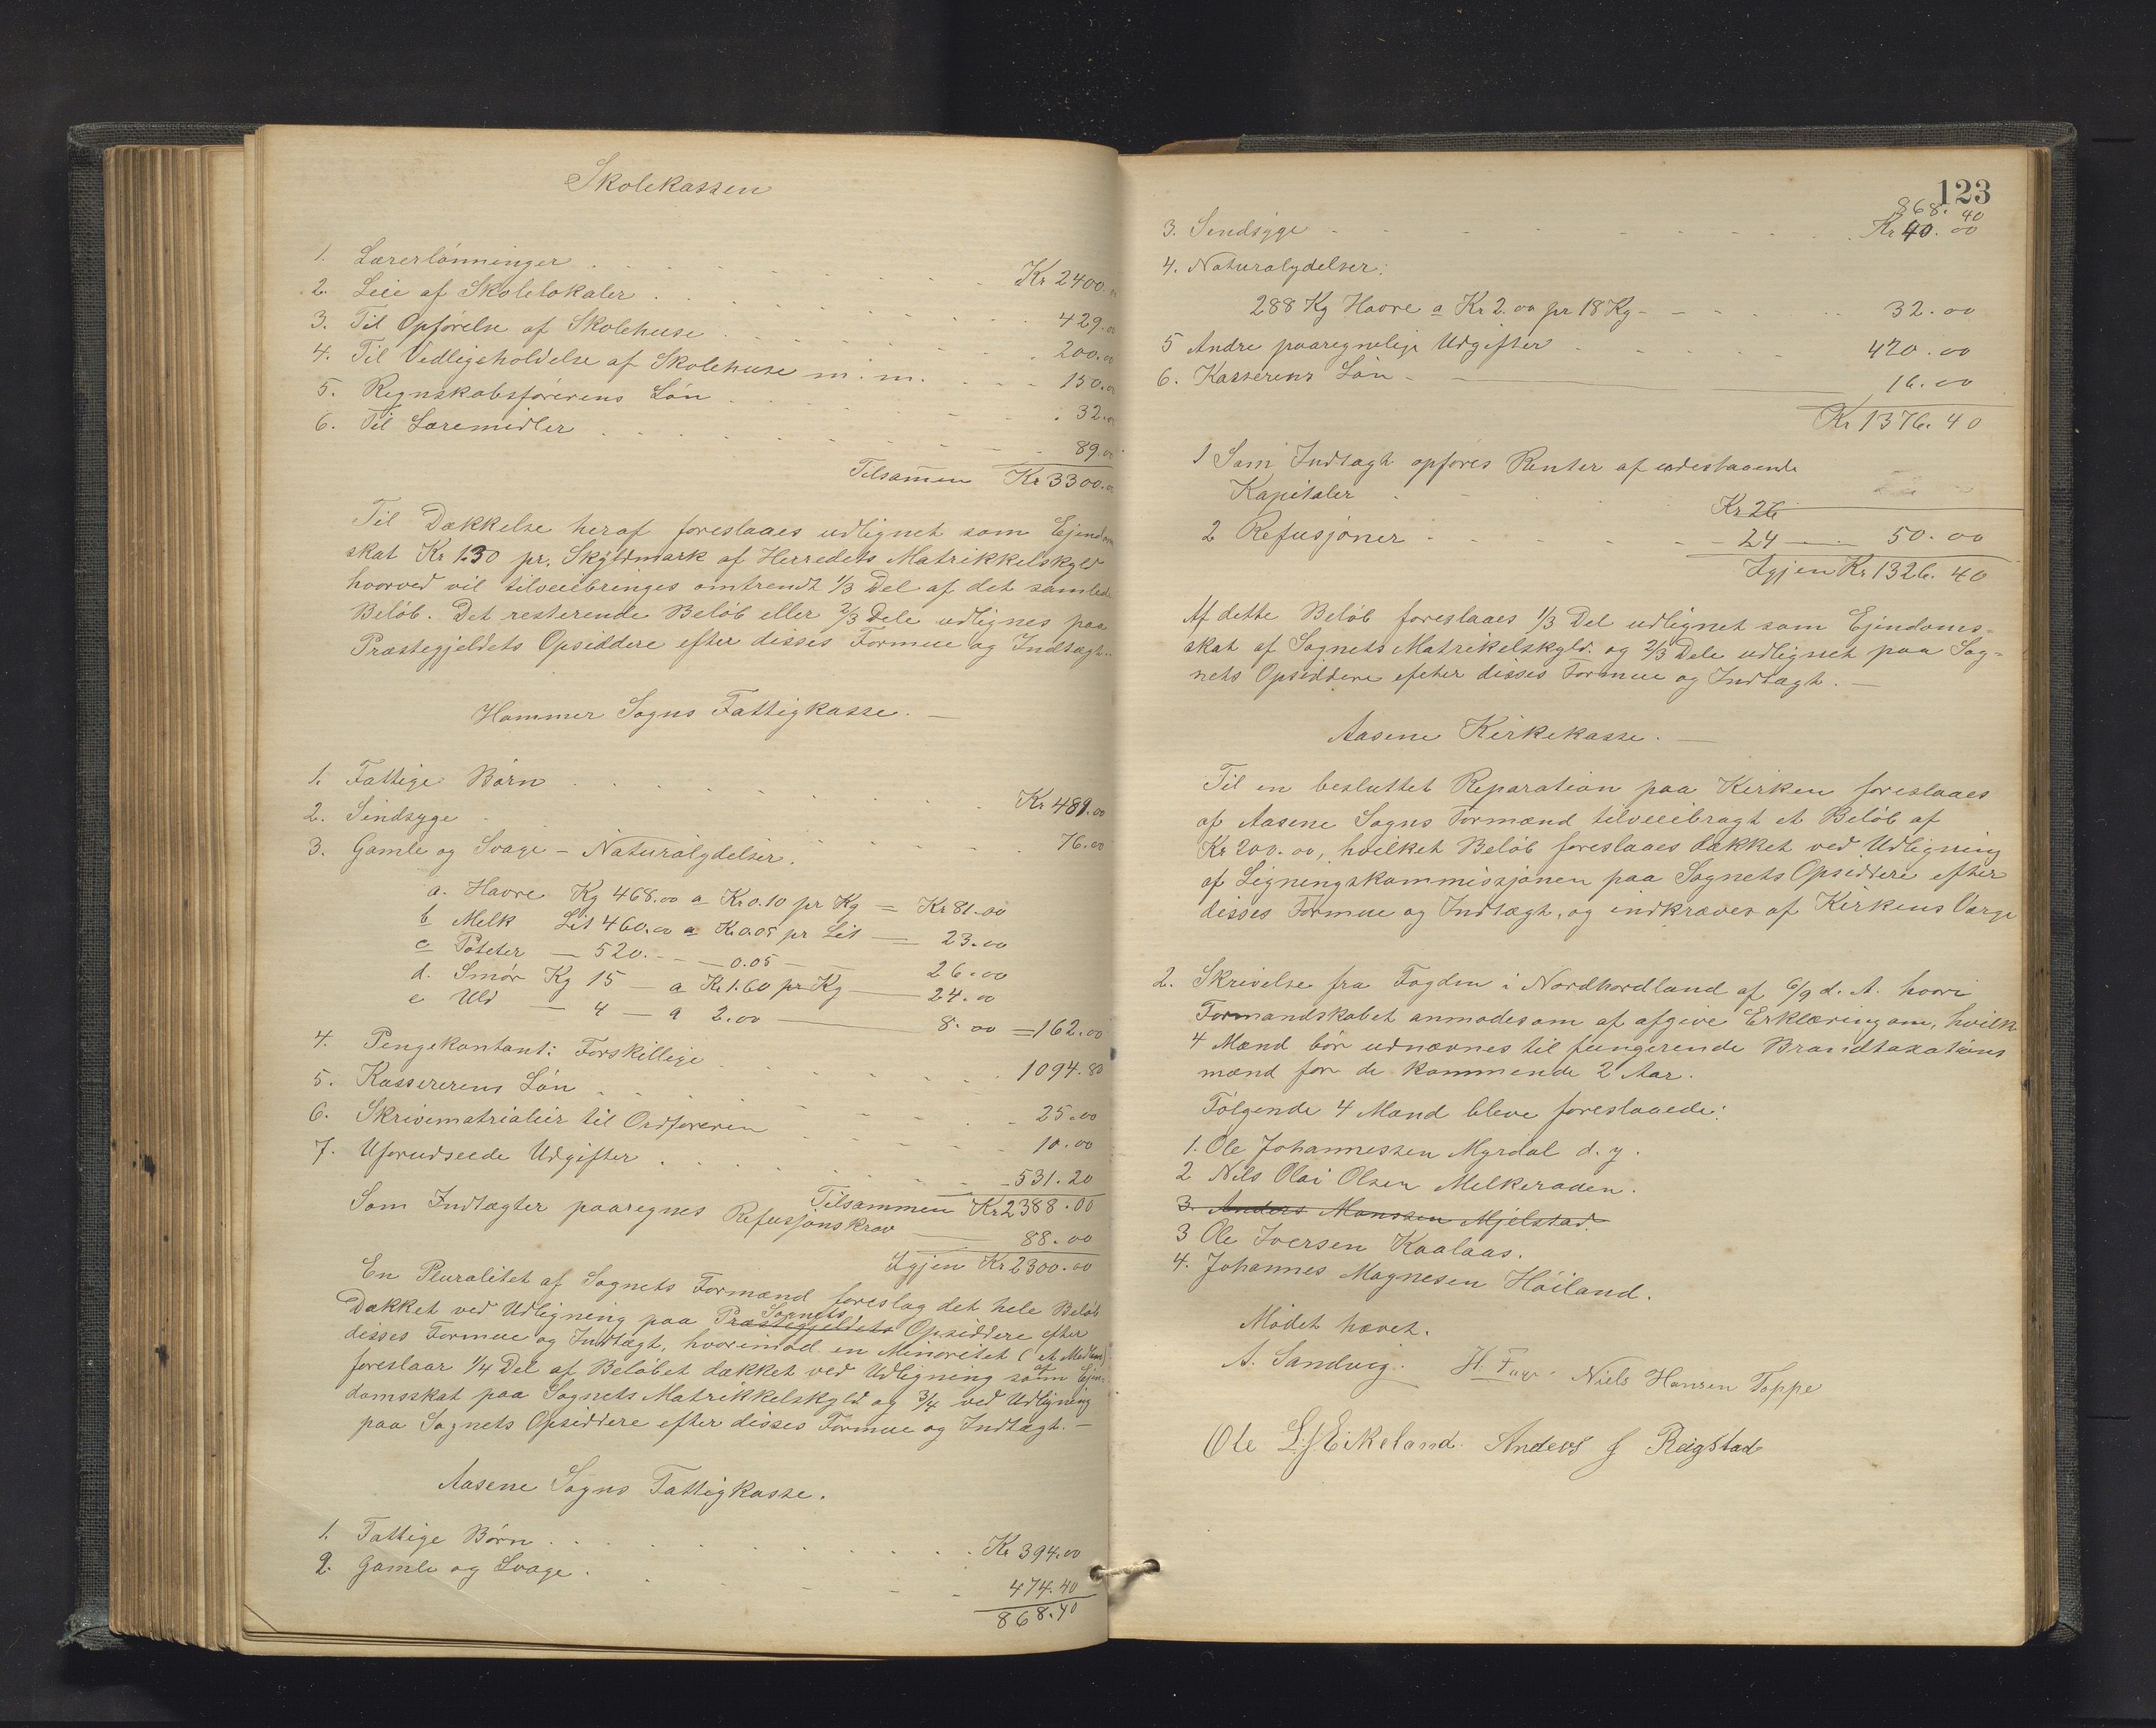 Skolekassen
1. Lærerlönninger . . . . . Kr 2400.
2. Leie af Skolelokaler . . . . . 429.00
3. Til Opförelse af Skolehuse . . . . . 200.00
4. Til Vedligeholdelse af Skolehuse m. m. . . . 150.00
5. Regnskabsförerens Lön . . . . . 32.00
6. Til Læremidler . . . . . 89.00
Tilsammen Kr 3300.00
Til Dækkelse heraf foreslaaes udlignet som Ejendom
skat Kr 1.30 pr. Skyldmark af Herredets Matrikkelskyld
hvorved vil tilveiebringes omtrendt 1/3 Del af det samlede
Belöb. Det resterende Belöb eller 2/3 Dele udlignes paa
Præstegjeldets Opsiddere efter disses Formue og Indtægt.
Hammer Sogns Fattigkasse. —
1. Fattige Börn . . . . . Kr 489.00
2. Sindsyge . . . . . 76.00
3. Gamle og Svage – Naturalydelser.
a. Havre Kg 468.00 a Kr 0.10 pr Kg = Kr 81.00
b Melk Lit 460.00 a Kr 0.05 pr Lit — 23.00
c Poteter — 520. - - — 0.05 — — 26.00
d. Smör Kg 15 — a Kr 1.60 pr Kg — 24.00
e Uld — 4 — a 2.00 — 8.00 = 162.00
4. Pengekontant: Forskillige . . . . . 1094.80
5. Kassererens Lön . . . . . 25.00
6. Skrivematrialier til Ordföreren . . . . . 10.00
7. Uforudseede Udgifter . . . . . 531.20
Tilsammen Kr 2388.00
Som Indtægter paaregnes Refusjonskrav — 88.00
Igjen Kr 2300.00
En Pluralitet af Sognets Formænd foreslog det hele Belöb
Dækket ved Udligning paa Præstegjeldets Sognets Opsiddere efter
disses Formue og Indtægt, hvorimod en Minoritet (et Medlem)
foreslaar 1/4 Del af Belöbet dækket ved Udligning som af Ejen-
domsskat paa Sognets Matrikkelskyld og 3/4 ved Udligning
paa Sognets Opsiddere efter disses Formue og Indtægt. —
Aasene Sogns Fattigkasse.
1. Fattige Börn . . . . . Kr 394.00
2. Gamle og Svage . . . . . 474.40
868.40
123
868.40
3. Sindsyge - - - - - Kr 40.00
4. Naturalydelser:
288 Kg Havre a Kr 2.00 pr 18 Kg - - - - 32.00
5 Andre paaregnelige Udgifter . . . . . 420.00
6. Kasserens Lön - — 16.00
Kr 1376.40
1 Som Indtægt opföres Renter af udestaaende
Kapitaler . . . . Kr 26
2 Refusjoner - - - - - 24 — 50.00
Igjen Kr 1326.40
Af dette Belöb foreslaaes 1/3 Del udlignet som Ejendoms-
skat af Sognets Matrikelskyld. og 2/3 Dele udlignet paa Sog-
nets Opsiddere efeter disses Formue og Indtægt. —
Aasene Kirkekasse. —
Til en besluttet Reparation paa Kirken foreslaaes
af Aasene Sogns Formænd tilveiebragt et Belöb af
Kr 200.00, hvilket Belöb foreslaaes dækket ved Udligning
af Ligningskommissjonen paa Sognets Opsiddere efter
disses Formue og Indtægt, og indkræves af Kirkens Værge
2. Skrivelse fra Fogden i Nordhordland af 6/9 d. A. hvori
Formandskabet anmodes om at afgive Erklæring om, hvilke
4 Mænd bör udnævnes til fungerende Brandtaxations
mænd for de kommende 2 Aar.
Fölgende 4 Mænd bleve foreslaaede:
1. Ole Johannessen Myrdal d. y.
2 Nils Olai Olsen Melkeraaen.
3. Anders Monssen Mjelstad.
3 Ole Iversen Kaalaas.
4. Johannes Magnesen Höiland.
Mödet hævet.
A. Sandvig. H. Niels Hansen Toppe
Ole L:s Eikeland. Anders J Reigstad